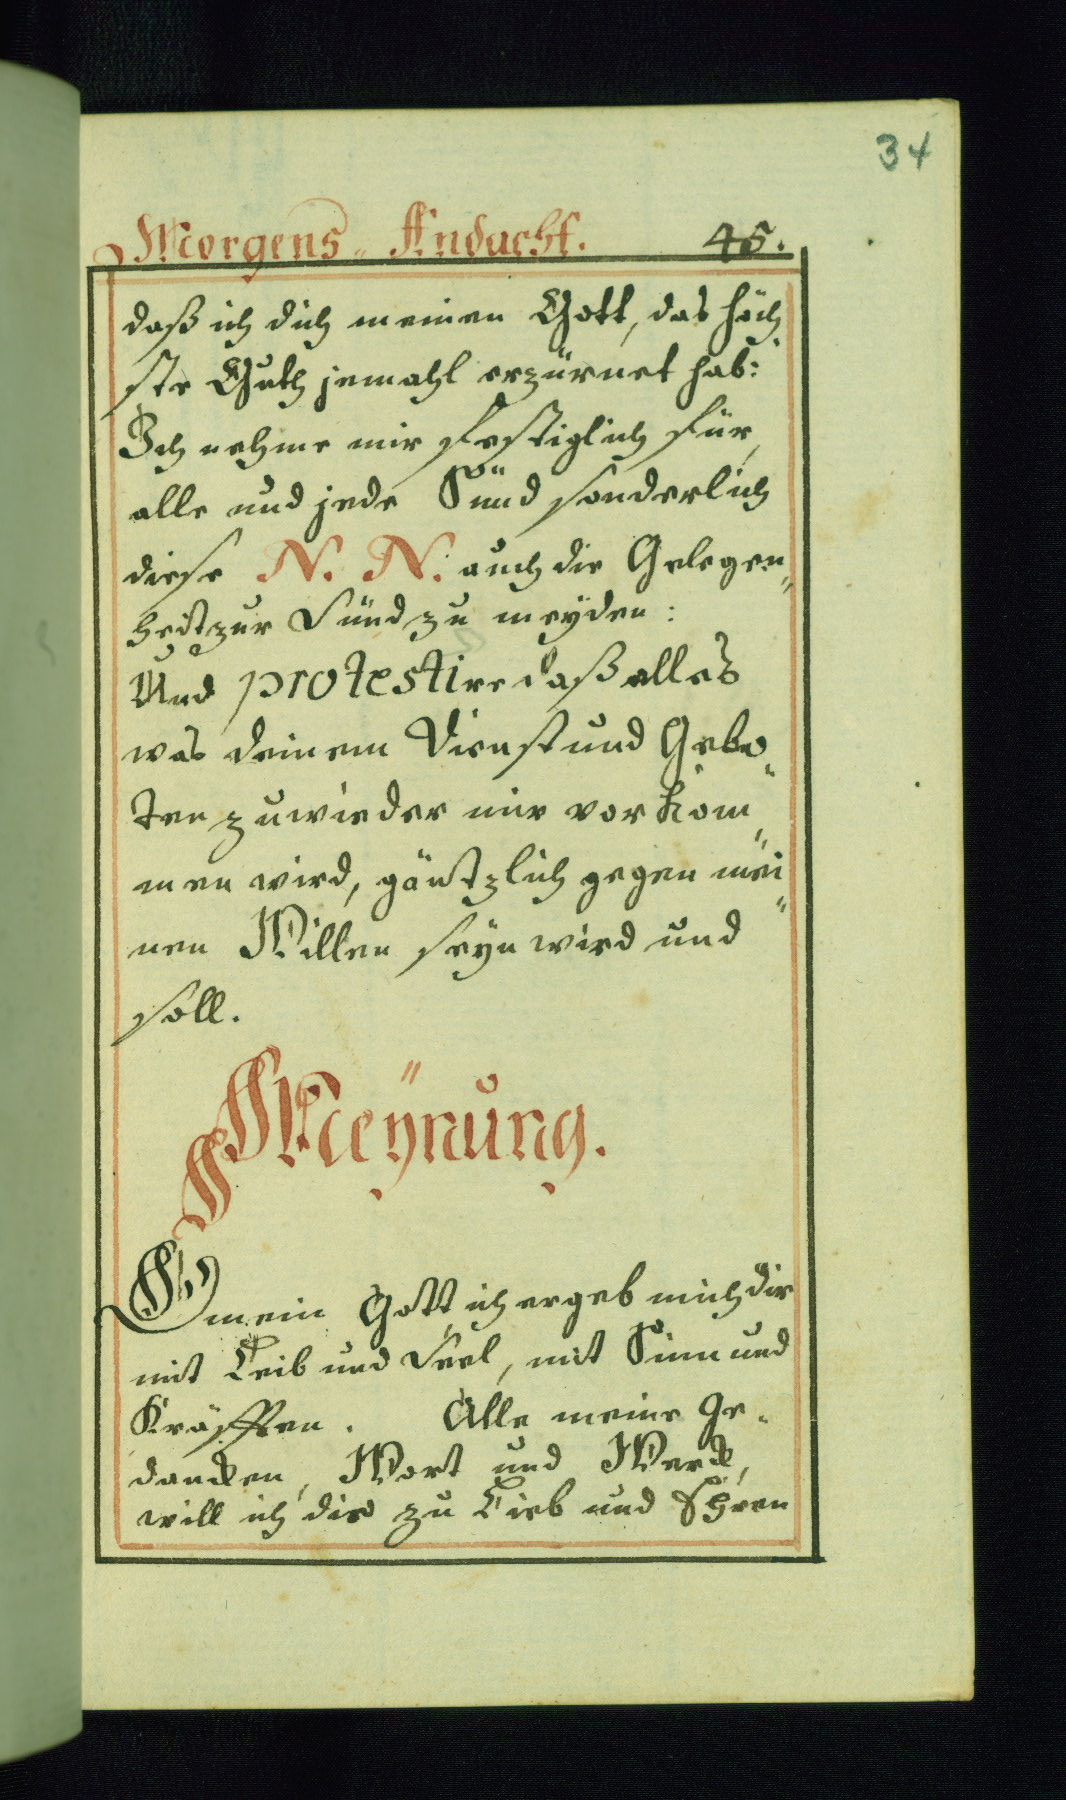 34
Morgens„ Andacht. 45.
daß ich dich meinen Gott, das höch„
ste Guth jemahl erzürnet hab:
Ich nehme mir festiglich für,
alle und jede Sünd sonderlich
diese N. N. auch die Gelegen„
heit zur Sünd zu meÿden:
Und protestire daß alles
was deinem Dienst und Gebo„
ten zuwieder mir vorkom„
men wird, gäntzlich gegen mei„
nen Willen seÿn wird und
soll.
Meÿnung.
O mein Gott ich ergeb mich dir
mit Leib und Seel, mit Sinn und
Kräfften. Alle meine Ge„
dancken, Wort und Werck,
will ich dir zu Lieb und Ehren